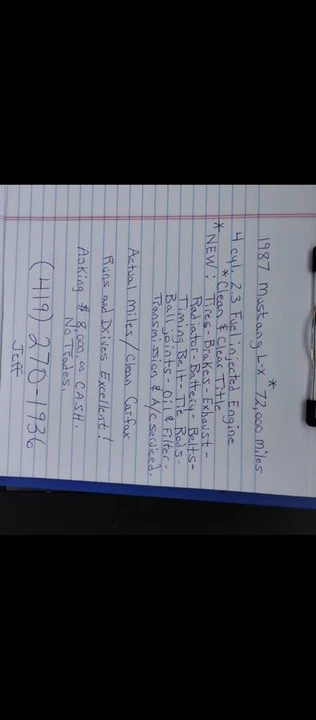 1987 Mustang L-X * 72,000 miles
4 cyl. 2.3 Fuel injected Engine
* Clean & Clear Title
* NEW: Tires - Brakes - Exhaust -
Radiator - Battery - Belts -
Timing Belt - Tie Rods -
Ball joints - Oil & Filter -
Transmission & A/c serviced.
Actual miles / Clean Carfax
Runs and Drives Excellent!
Asking $ 8,000.00 CASH.
No Trades.
(419) 270-1936
Jeff